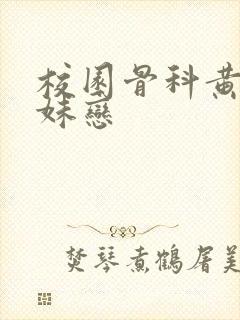 校園骨科黄
妹戀
焚琴煮鶴屠美